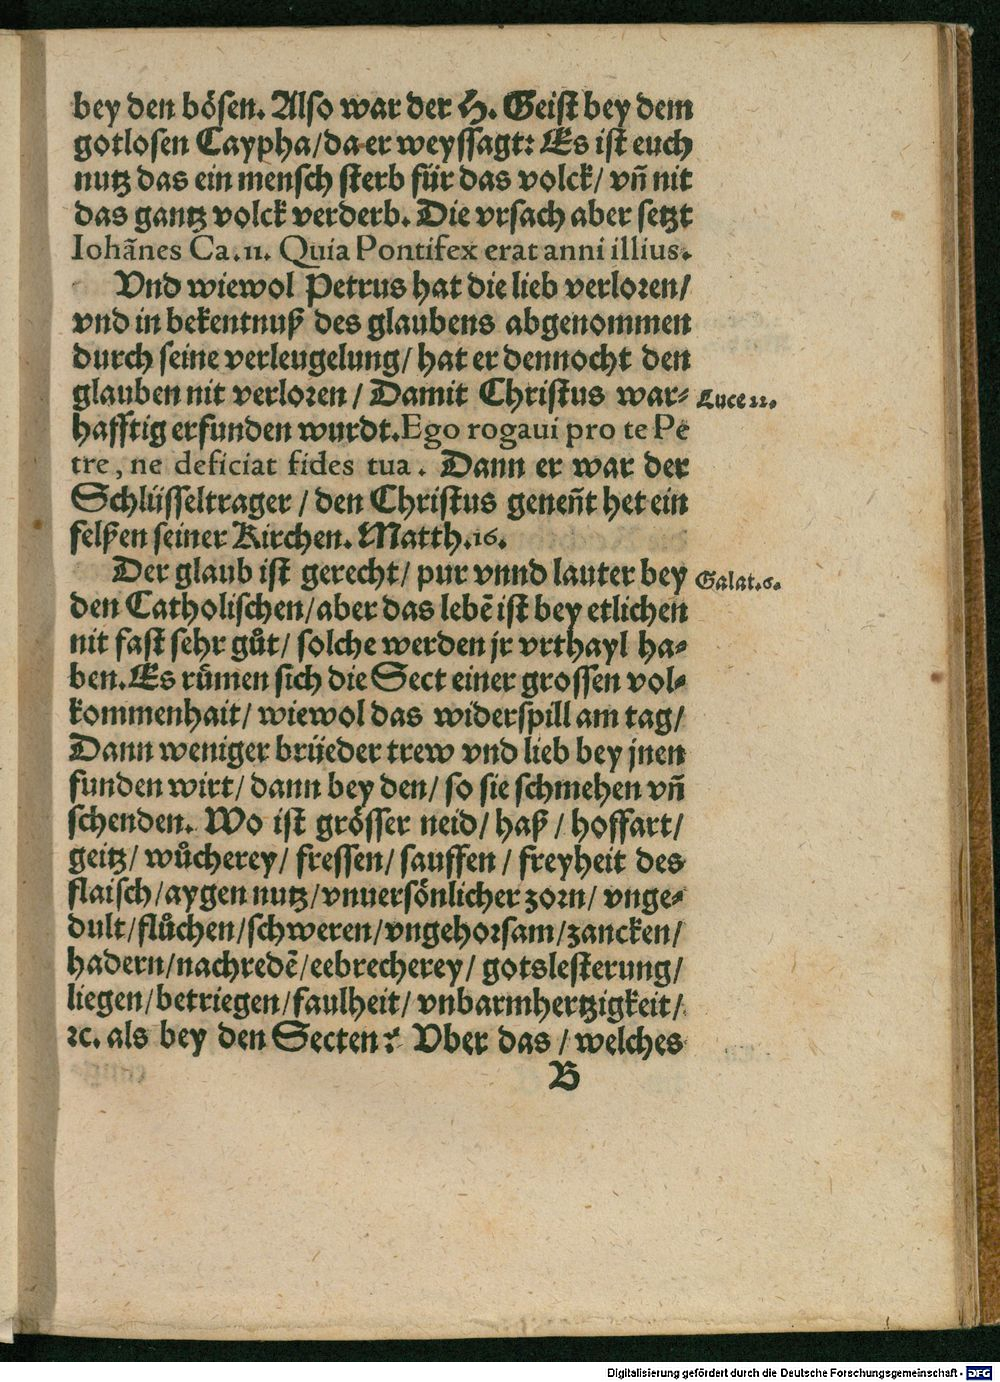 bey den bösen. Also war der H. Geist bey dem
gotlosen Caypha/da er weyssagt: Es ist euch
nutz das ein mensch sterb für das volck/ vñ nit
das gantz volck verderb. Die vrsach aber setzt
Iohãnes Ca.11. Quia Pontifex erat anni illius.
Vnd wiewol Petrus hat die lieb verloren/
vnd in bekentnuß des glaubens abgenommen
durch seine verleugelung/ hat er dennocht den
glauben nit verloren / Damit Christus war- Luce 22.
hafftig erfunden wurdt. Ego rogaui pro te Pe
tre, ne deficiat fides tua. Dann er war der
Schlüsseltrager / den Christus geneñt het ein
felßen seiner Kirchen. Matth.16.
Der glaub ist gerecht/ pur vnnd lauter bey Galat.6.
den Catholischen/aber das lebẽ ist bey etlichen
nit fast sehr gůt/ solche werden jr vrthayl ha-
ben. Es růmen sich die Sect einer grossen vol-
kommenhait/ wiewol das widerspill am tag/
Dann weniger brüeder trew vnd lieb bey jnen
funden wirt/ dann bey den/ so sie schmehen vñ
schenden. Wo ist grösser neid/ haß / hoffart/
geitz/ wůcherey/ fressen/ sauffen / freyheit des
flaisch/aygen nutz/vnuersönlicher zorn/ vnge-
dult/flůchen/schweren/vngehorsam/zancken/
hadern/nachredẽ/eebrecherey/ gotslesterung/
liegen/betriegen/faulheit/ vnbarmhertzigkeit/
ꝛc. als bey den Secten? Vber das / welches
B
Digitalisierung gefördert durch die Deutsche Forschungsgemeinschaft - DFG